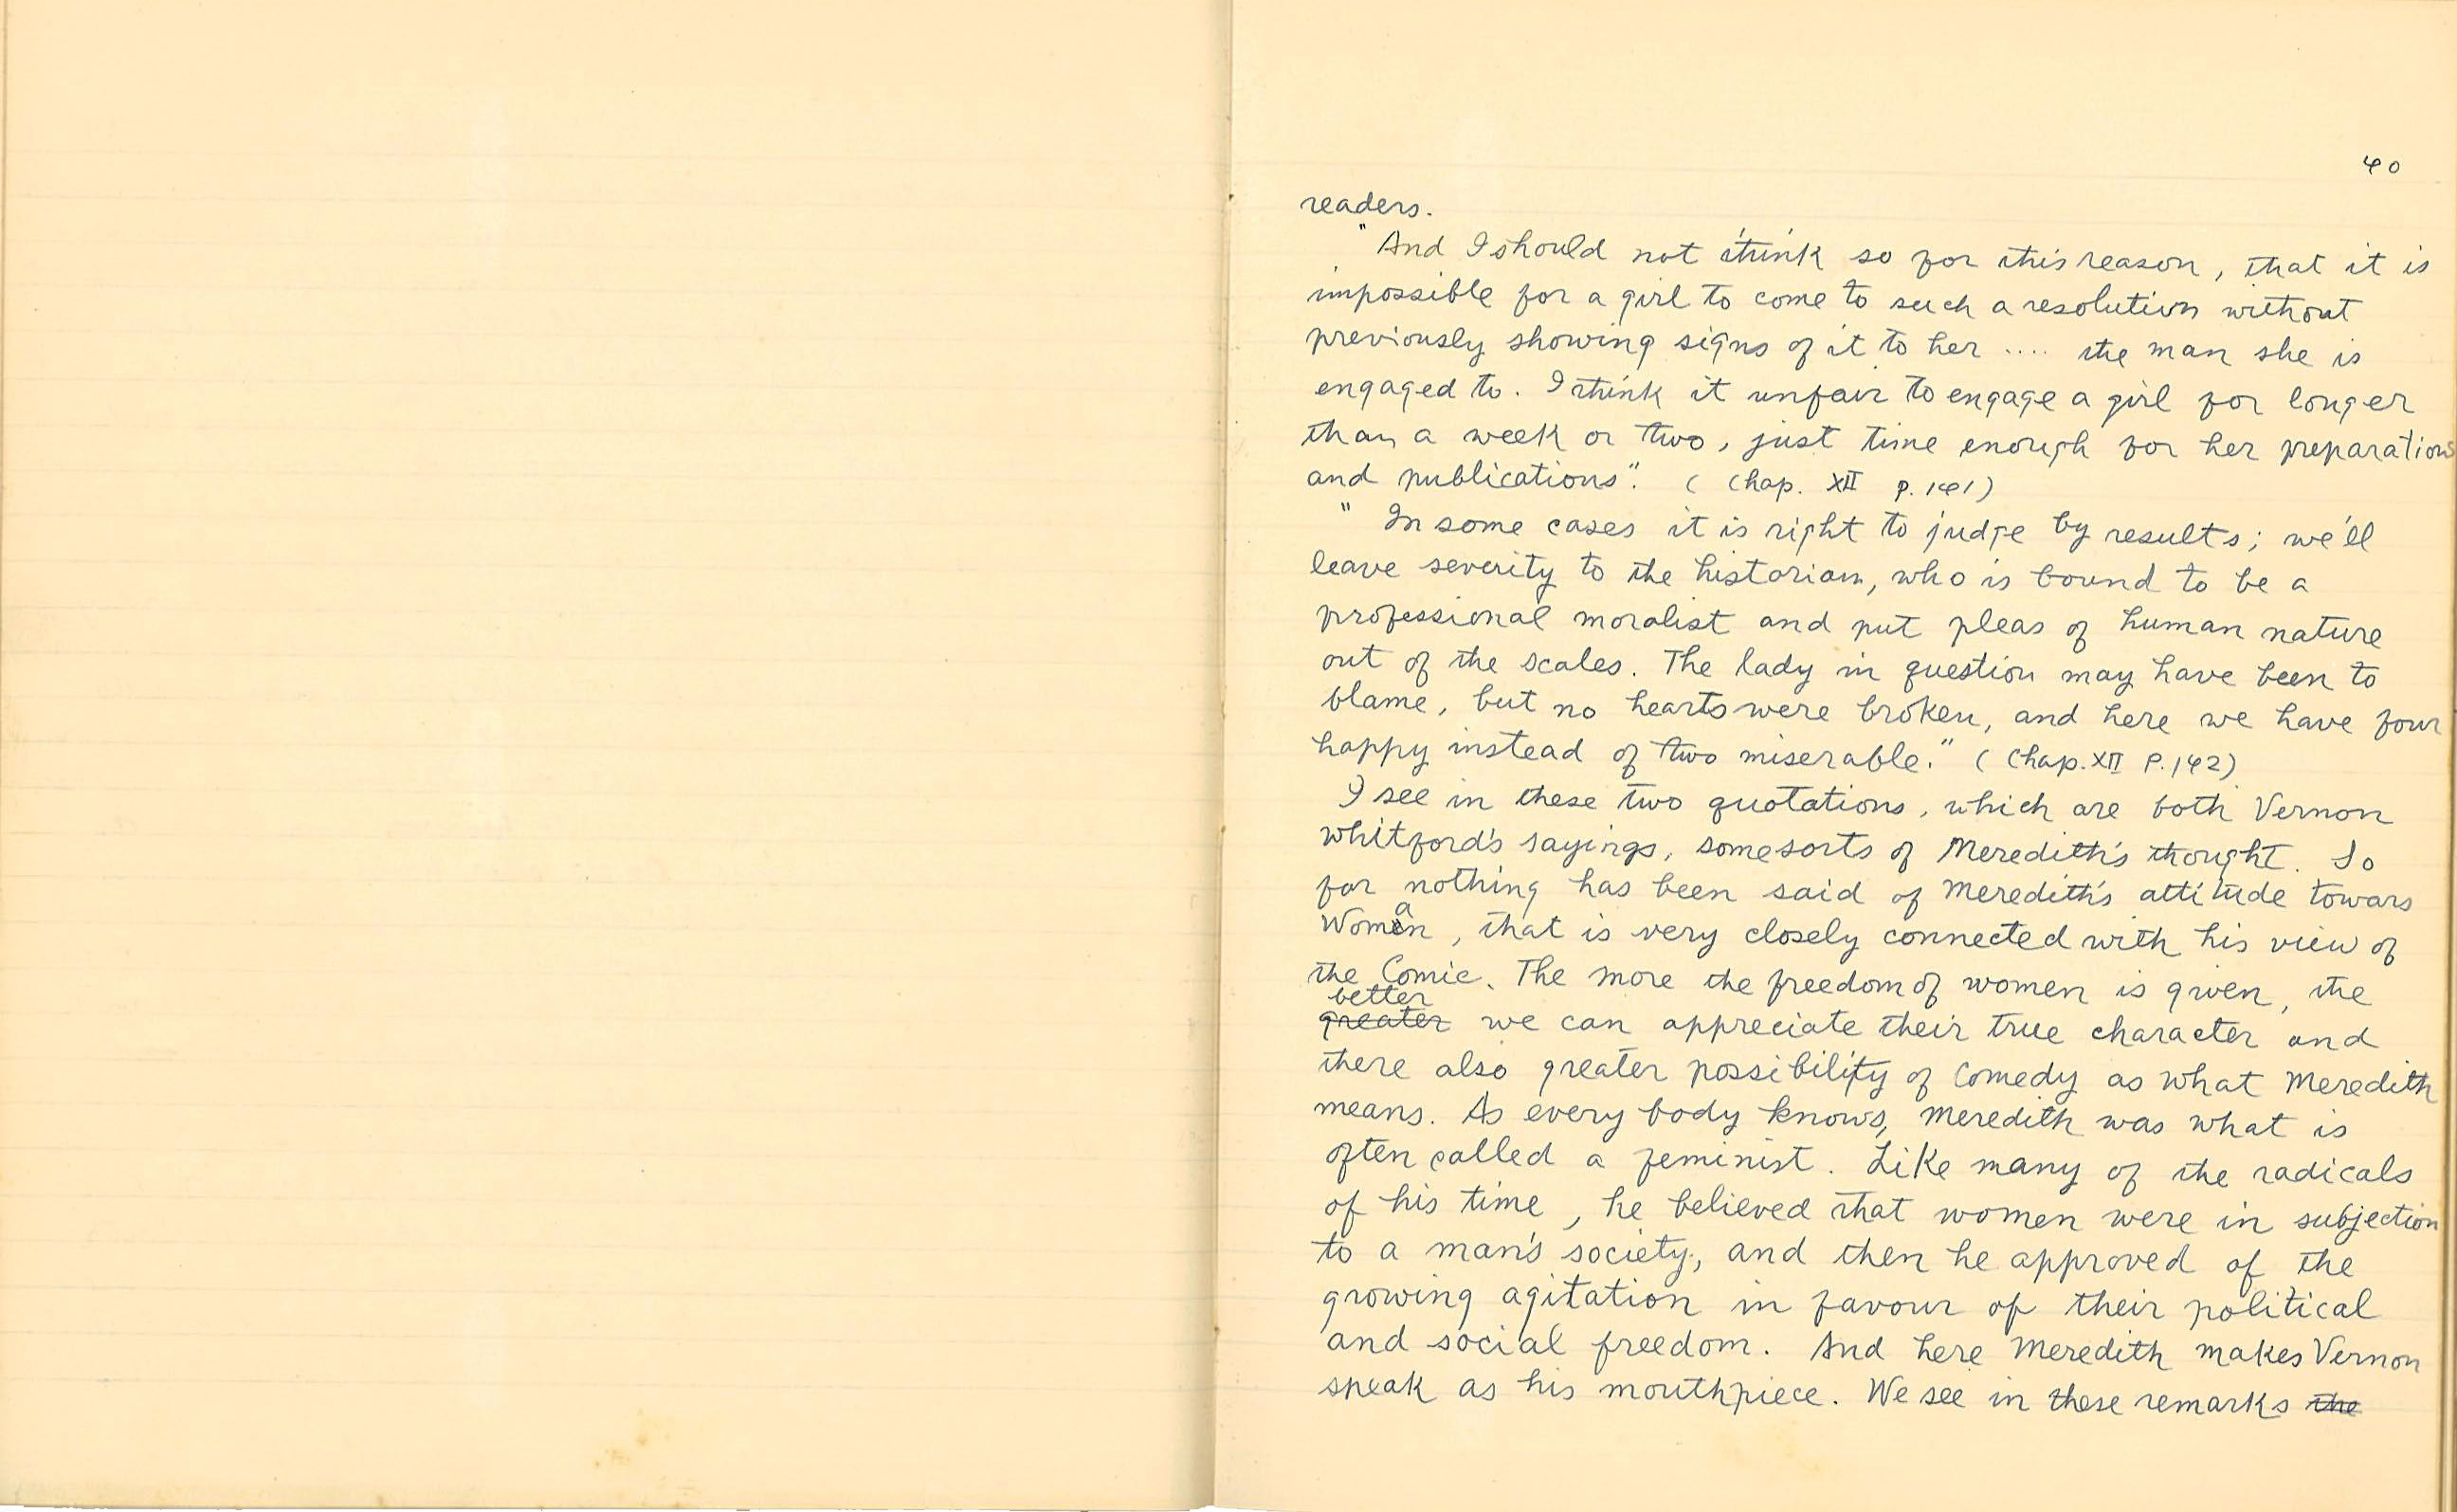 40
readers.
"And I should not think so for this reason, that it is
impossible for a girl to come to such a resolution without
previously showing signs of it to her .... the man she is
engaged to. I think it unfair to engage a girl for longer
than a week or two, just time enough for her preparations
and publications". ( Chap. XII p. 141)
" In some cases it is right to judge by results; we'll
leave severity to the historian, who is bound to be a
professional moralist and put pleas of human nature
out of the scales. The lady in question may have been to
blame, but no hearts were broken, and here we have four
happy instead of two miserable." ( Chap. XII P. 142)
I see in these two quotations, which are both Vernon
Whitford's sayings, some sorts of Meredith's thought. So
far nothing has been said of Meredith's attitude towars
Woman, that is very closely connected with his view of
the Comic. The more the freedom of women is given, the
better
greater we can appreciate their true character and
there also greater possibility of Comedy as what Meredith
means. As every body knows, Meredith was what is
often called a feminist. Like many of the radicals
of his time, he believed that women were in subjection
to a man's society, and then he approved of the
growing agitation in favour of their political
and social freedom. And here Meredith makes Vernon
speak as his mouthpiece. We see in these remarks the